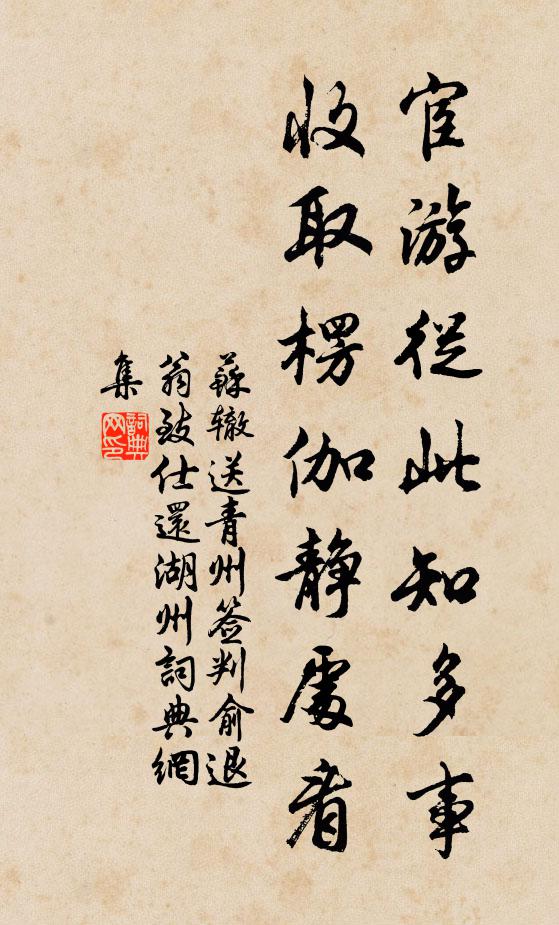 宦游從此知多事
收取楞伽靜處看
蘇轍送青州签判俞退
翁致仕還湖州詞典網
集
詞典
网印